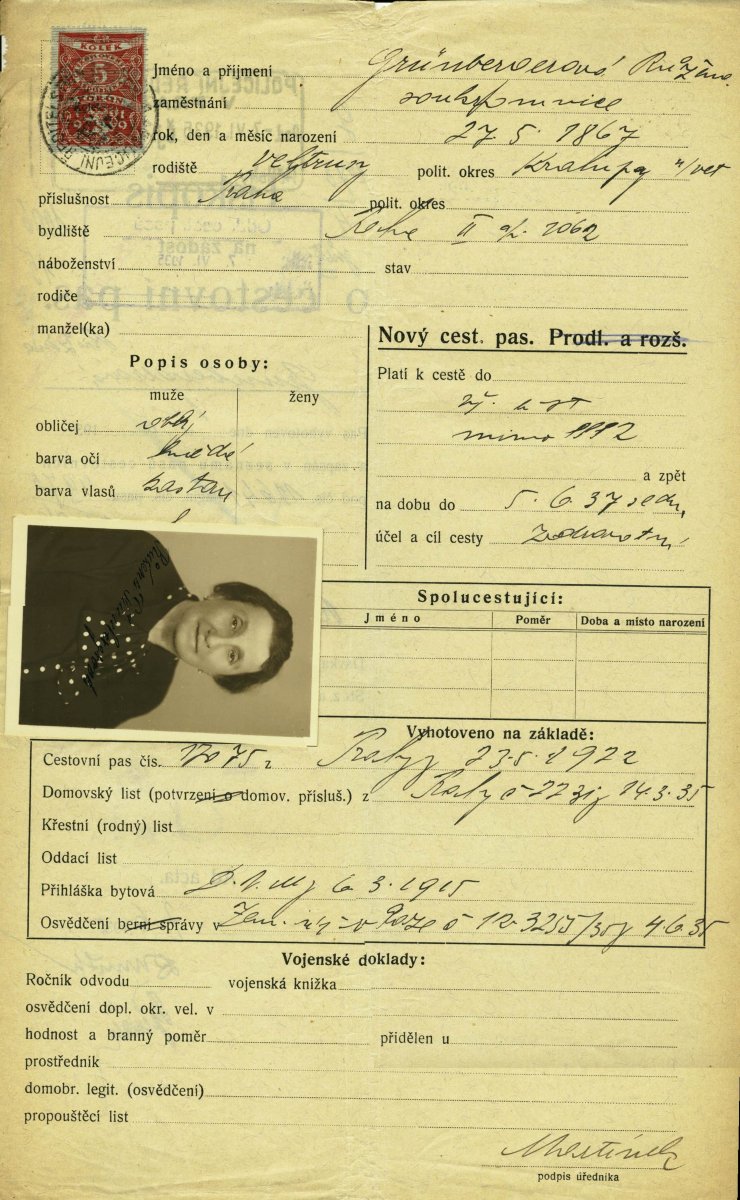 KOLEK
5
KORUN
Jméno a příjmení Grünbergerová Růžena
zaměstnání soukromnice
rok, den a měsíc narození 27. 5. 1867
rodiště Veltrusy polit. okres Kralupy n/Vlt
příslušnost Praha polit. okres
bydliště Praha II čp. 1062
náboženství stav
rodiče
manžel(ka)
Popis osoby:
muže ženy
obličej oblý
barva očí hnědé
barva vlasů kaštan
Nový cest. pas. Prodl. a rozš.
Platí k cestě do
mimo
a zpět
na dobu do 5. 6. 37
účel a cíl cesty zdravotní
Spolucestující:
Jméno Poměr Doba a místo narození
Vyhotoveno na základě:
Cestovní pas čís. 12075 z Prahy 23. 5. 1922
Domovský list (potvrzení o domov. přísluš.) z Prahy 14. 3. 35
Křestní (rodný) list
Oddací list
Přihláška bytová 6. 3. 1915
Osvědčení berní správy v Zem. v Praze č 4. 6. 35
Vojenské doklady:
Ročník odvodu vojenská knížka
osvědčení dopl. okr. vel. v
hodnost a branný poměr přidělen u
prostředník
domobr. legit. (osvědčení)
propouštěcí list
podpis úředníka